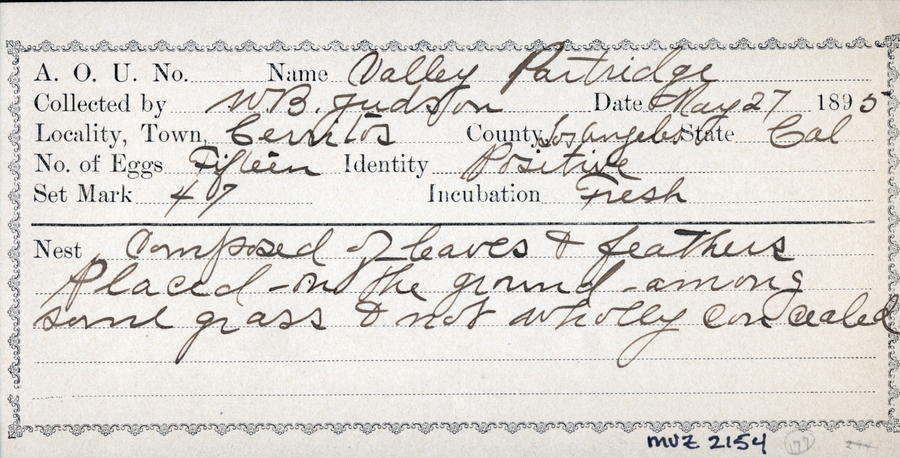 A. O. U. No. Name Valley Partridge
Collected by W B. Judson Date May 27 1895
Locality, Town, Cerritos County, Los Angeles State Cal
No. of Eggs Fifteen Identity Positive
Set Mark Incubation Fresh
Nest Composed of leaves & feathers
Placed - on the ground - among
some grass & not wholly concealed
MVZ 2154